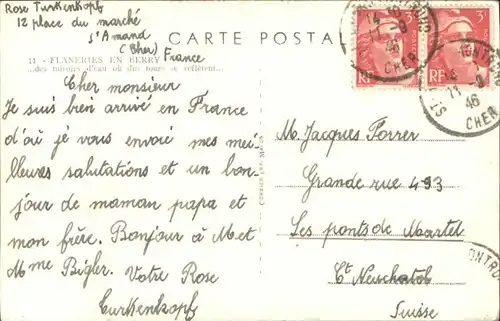 Rose Turkenkopf
12 place du marché
S'Amand
(Cher)
France
CARTE POSTA
11 - FLANERIES EN BERRY
...des miroirs d'eau où des tours se reflètent...
Cher monsieur
Je suis bien arrivé en France
d'où je vous envoie mes mei-
lleures salutations et un bon-
jour de maman papa et
mon frère. Bonjour à M et
Mme Bigler. Votre Rose
Turkenkopf
M. Jacques Forrer
Grande rue 493
Les ponts de Martel
Ct Neuchatel
Suisse
3F
3F
RF
RF
46
CHER
11 - 9
46
CHER